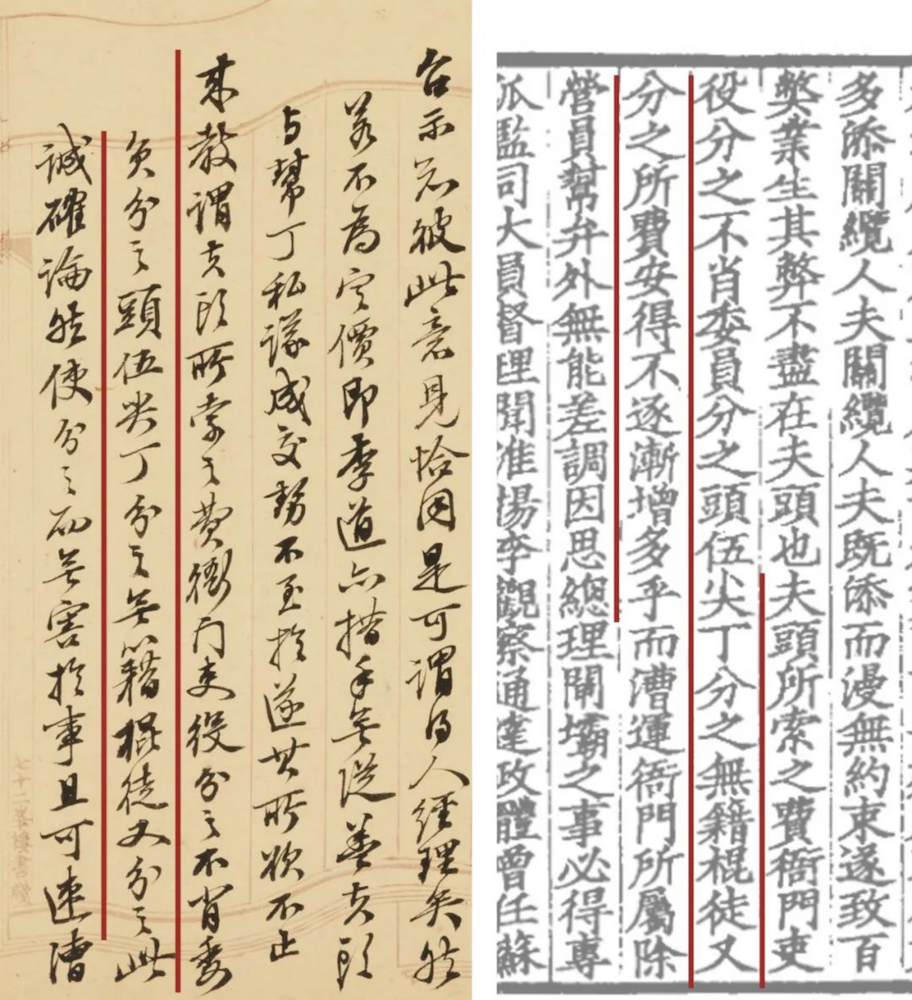 台示若彼此意見恰同是可謂得人經理矣然
若不為定價即李道亦措手無從蓋夫頭
与幫丁私議成交勢不至於遂其所欲不止
來教謂夫頭所索之費衙門吏役分之不肖委
員分之頭伍尖丁分之無籍棍徒又分之此
誠確論然使分之而無害於事且可速漕
七十二峯樓書牋
多添關纜人夫關纜人夫既添而漫無約束遂致百
弊業生其弊不盡在夫頭也夫頭所索之費衙門吏
役分之不肖委員分之頭伍尖丁分之無籍棍徒又
分之所費安得不逐漸增多乎而漕運衙門所屬除
營員幫弁外無能差調因思總理閘壩之事必得專
派監司大員督理聞淮揚李觀察通達政體曾任蘇